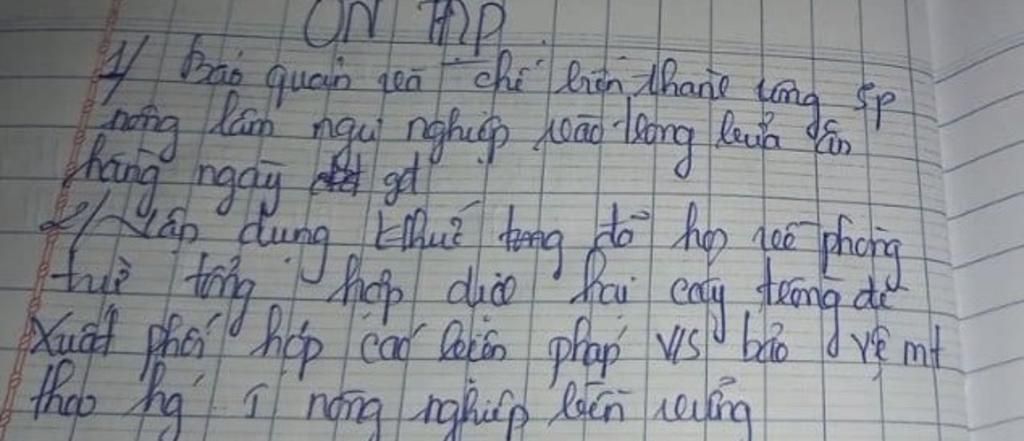 ÔN TẬP
1/ Bảo quản và chế biến thành từng sp
nông lâm ngư nghiệp vào trong bữa ăn
hàng ngày gđ
2/ Vận dụng kthuế trong đó họ về phòng
trừ tổng hợp dịch hại cây trồng đề
xuất phối hợp các biện pháp v/s bảo vệ mt
theo hg 1 nông nghiệp bền vững